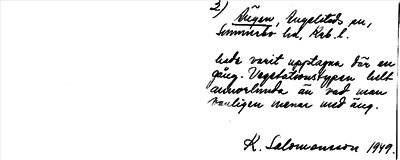 2)
Ängen, Ängelstads sn,
Sunnerbo hd, Krb. l.
hade varit upptagna där en
gång. Vegetationstypen helt
annorlunda än vad man
vanligen menar med äng.
K. Salomonsson 1949.